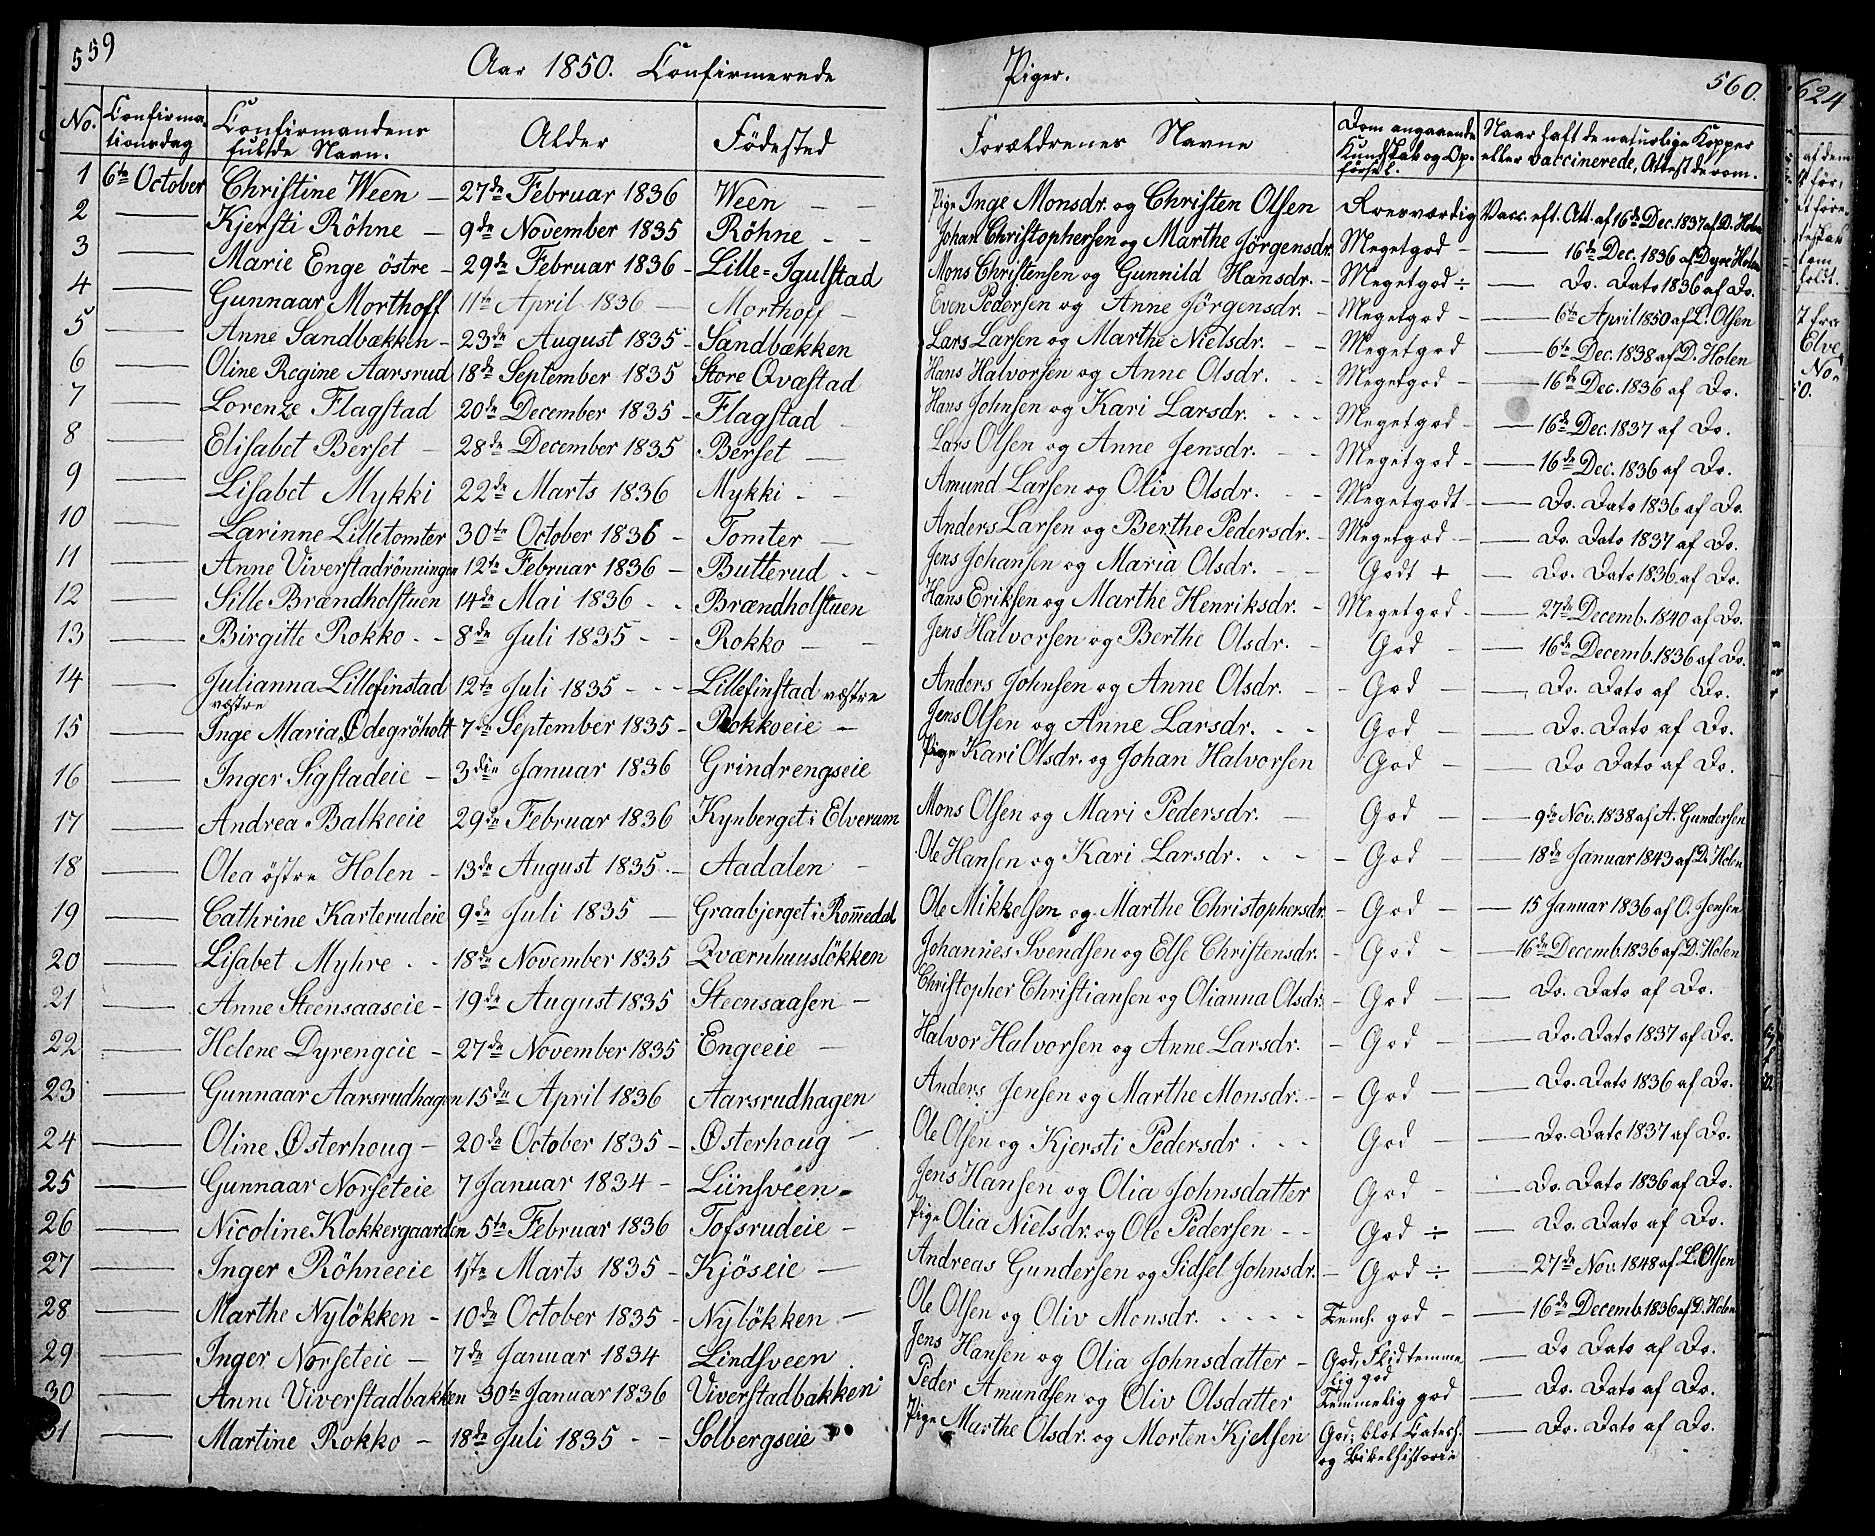 559
Aar 1850. Confirmerede Piger. 560.
No. Confirma-tionsdag Confirmandens fulde Navn. Alder Födested Forældrenes Navne Dom angaaende Kundskab og Op-förse l. Naar haft de naturlige Kopper eller vaccinerede, Attest derom.
1 6te October Christine Ween — 27de Februar 1836 Ween — — Pige Inge Monsdr. og Christen Olsen Roesværdig Vacc. eft. Att. af 16de Dec. 1837 af D. Holen
2 — Kjersti Röhne — 9de November 1835 Röhne - - Johan Christophersen og Marthe Jörgensdr. Megetgod — 16de Dec. 1836 af Dyre Holen
3 — Marie Enge östre - 29de Februar 1836 - Lille=Igulstad Mons Christensen og Gunnild Hansdr. - Megetgod ÷ — Do. Dato 1836 af Do.
4 — Gunnaar Morthoff 11te April 1836 — Morthoff — Even Pedersen og Anne Jörgensdr. - Megetgod - — 6te April 1850 af L. Olsen
5 — Anne Sandbækken - 23de August 1835 - Sandbækken Lars Larsen og Marthe Nielsdr. - - Megetgod — 6te Dec. 1838 af D. Holen
6 — Oline Regine Aarsrud 18de September 1835 Store Qvæstad Hans Halvorsen og Anne Olsdr. - - Megetgod - — 16de Dec. 1836 af Do.
7 — Lorenze Flagstad 20de December 1835 - Flagstad - Hans Johnsen og Kari Larsdr. - - - Megetgod - — 16de Dec. 1837 af Do.
8 — Elisabet Berset — 28de December 1835 Berset — Lars Olsen og Anne Jensdr. - - Megetgod - — 16de Dec. 1836 af Do.
9 — Lisabet Mykki 22de Marts 1836 Mykki - - Amund Larsen og Oliv Olsdr. - - Megetgodt - — Do. Dato 1836 af Do.
10 — Larinne Lilletomter 30te October 1836 - Tomter — Anders Larsen og Berthe Pedersdr. - Megetgod - — Do. Dato 1837 af Do.
11 — Anne Viverstadrönningen 12te Februar 1836 - Butterud - - Jens Johansen og Maria Olsdr. - - Godt + — Do. Dato 1836 af Do.
12 — Sille Brændholstuen 14de Mai 1836 - - Brændholstuen Hans Eriksen og Marthe Henriksdr. - Megetgod - — 27de Decemb. 1840 af Do.
13 — Birgitte Rokko - - 8de Juli 1835 - - Rokko — - Jens Halvorsen og Berthe Olsdr. - God - — 16de Decemb. 1836 af Do.
14 — Julianna Lillefinstad væstre 12te Juli 1835 - - - Lillefinstad væstre Anders Johnsen og Anne Olsdr. - - God - — Do. Dato af Do.
15 — Inge Maria Ödegröholt 7de September 1835 - Rokkoeie — Jens Olsen og Anne Larsdr. - - God - — Do. Dato af Do.
16 — Inger Sigstadeie - 3die Januar 1836 Grindrengseie Pige Kari Olsdr. og Johan Halvorsen God - — Do Dato af Do.
17 — Andrea Balkeeie 29de Februar 1836 Kynberget i Elverum Mons Olsen og Mari Pedersdr. — God - — 9de Nov. 1838 af A. Gundersen
18 — Olea östre Holen - 13de August 1835 - - Aadalen - Ole Hansen og Kari Larsdr. - - - God - — 18de Januar 1843 af D. Holen
19 — Cathrine Karterudeie 9de Juli 1835 — Graabjerget i Rom̅edal Ole Mikkelsen og Marthe Christophersdr. - God - — 15 Januar 1836 af O. Jensen
20 — Lisabet Myhre - - 18de November 1835 Qværnhuuslökken Johannes Svendsen og Else Christensdr. - God - — 16de Decemb. 1836 af D. Holen
21 — Anne Steensaaseie - 19de August 1835 Steensaasen — Christopher Christiansen og Olianna Olsdr. - God - — Do. Dato af Do.
22 — Helene Dyrengeie - 27de November 1835 Engeeie — Halvor Halvorsen og Anne Larsdr. - God - — Do. Dato 1837 af Do.
23 — Gunnaar Aarsrudhagen 15de April 1836 Aarsrudhagen Anders Jensen og Marthe Monsdr. - - God - — Do. Dato 1836 af Do.
24 — Oline Østerhoug - 20de October 1835 - Østerhoug - Ole Olsen og Kjersti Pedersdr - - - God - — Do. Dato 1837 af Do.
25 — Gunnaar Norseteie 7 Januar 1834 - Liinsveen - Jens Hansen og Olia Johnsdatter God - — Do. Dato 1836 af Do.
26 — Nicoline Klokkergaarden 5te Februar 1836 Tofsrudeie - Pige Olia Nielsdr. og Ole Pedersen - - God ÷ — Do. Dato af Do.
27 — Inger Röhneeie 1ste Marts 1835 - Kjöseie — Andreas Gundersen og Sidsel Johnsdr. - God ÷ — 27de Nov. 1848 af L. Olsen
28 — Marthe Nylökken - 10de October 1835 - Nylökken — Ole Olsen og Oliv Monsdr. - - - - Temℓ. god - — 16de Decemb. 1836 af D. Holen
29 — Inger Norseteie — 7de Januar 1834 Lindsveen. Jens Hansen og Olia Johnsdatter - God, Flid temme lig god — Do Dato af Do.
30 — Anne Viverstadbakken 30te Januar 1836 Viverstadbakken Peder Amundsen og Oliv Olsdatter Temmelig god — Do. Dato af Do.
31 — Martine Rokko - 18de Juli 1835 - - Solbergseie Pige Marthe Olsdr. og Morten Kjelsen God; blot Catech. og Bibelhistorie — Do. Dato af Do.
624